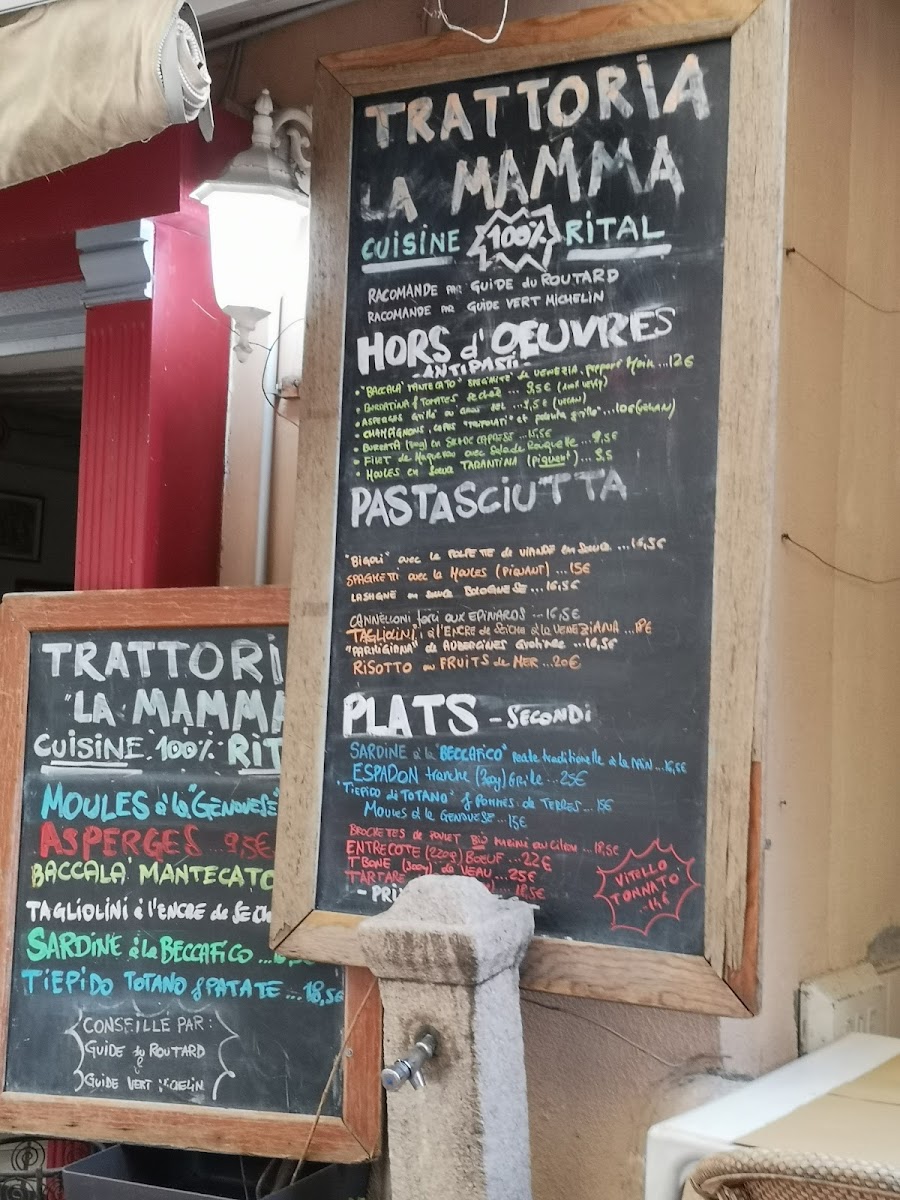 TRATTORIA
LA MAMMA
CUISINE 100% RITAL
RACOMANDE PAR GUIDE du ROUTARD
RACOMANDE PAR GUIDE VERT MICHELIN
HORS d'OEUVRES
- ANTIPASTI -
• "BACCALA' MANTECATO" SPECIALITÉ de VENEZIA, préparé Main ...12€
• BURRATINA & TOMATES séchés ... 9,5€
• ASPERGES Grillé au gros sel ... 9,5€ (VEGAN)
• CHAMPIGNONS, CEPES et polenta grillé ...10€ (VEGAN)
• BURRATA en SAUCE CAPRESE ...15,5€
• FILET de Maquereau avec Salade Roquette ... 9,5€
• MOULES en Sauce TARANTINA (piquant) ... 9,5
PASTASCIUTTA
"BIGOLI" avec la POLPETTE de VIANDE en Sauce ...16,5€
SPAGHETTI avec la MOULES (PIQUANT) ...15€
LASAGNE en SAUCE BOLOGNESE ...16,5€
CANNELLONI farci aux EPINARDS ...16,5€
"TAGLIOLINI" à l'ENCRE de SEICHE à la VENEZIANA ...18€
"PARMIGIANA" de AUBERGINES Gratinée ...16,5€
RISOTTO au FRUITS de MER ...20€
PLATS - SECONDI
SARDINE à la "BECCAFICO" recette traditionelle à la MAIN ...16,5€
ESPADON tranche (300g) Grillé ...25€
"TIEPIDO di TOTANO" & POMMES de TERRES ...18€
MOULES à la GENOVESE ...15€
BROCHETES de POULET BIO MARINÉ au Citron ...18,5€
ENTRECOTE (220g) BOEUF ...22€
T BONE (300g) de VEAU ...25€
TARTARE ... 18,5€
VITELLO
TONNATO
...14€
- PRI
TRATTORI
"LA MAMMA
CUISINE 100% RIT
MOULES à la "GENOVESE"
ASPERGES ... 9,5€
BACCALA' MANTECATO
TAGLIOLINI à l'ENCRE de SEICH
SARDINE à la BECCAFICO
TIEPIDO TOTANO & PATATE ...18,5€
CONSEILLÉ PAR :
GUIDE du ROUTARD
&
GUIDE VERT MICHELIN